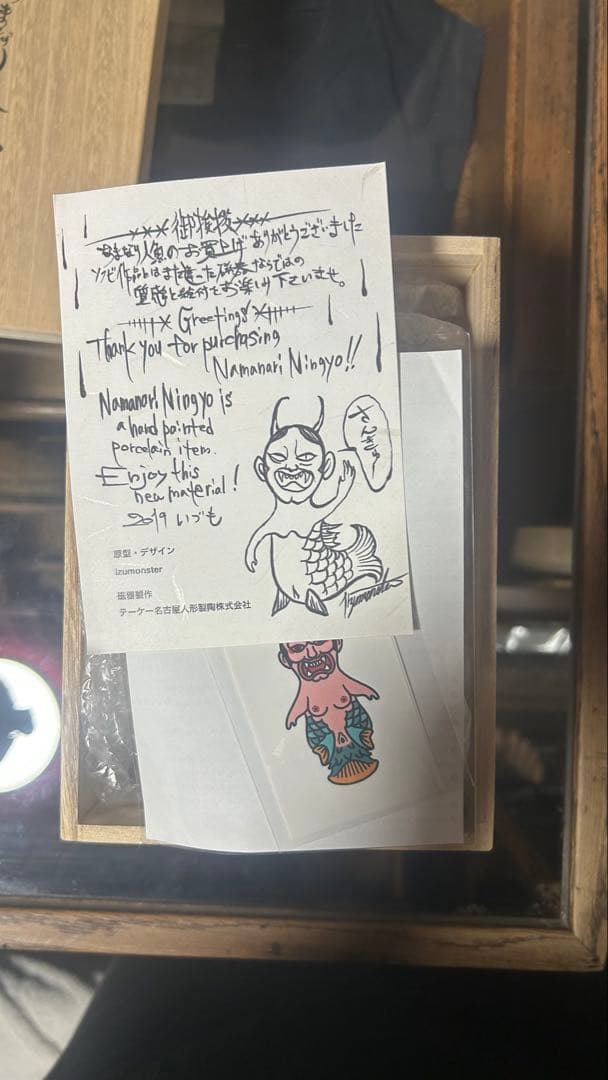 御挨拶
なまなり人魚のお買上げありがとうございました
ソフビ作品とはまた違った磁器ならではの
質感と絵付をお楽しみ下さいませ。
Greetings
Thank you for purchasing
Namanari Ningyo!!
Namanari Ningyo is
a hand painted
porcelain item.
Enjoy this
new material!
2019 いづも
さんきゅー
原型・デザイン
izumonster
磁器製作
テーケー名古屋人形製陶株式会社
Izumonster